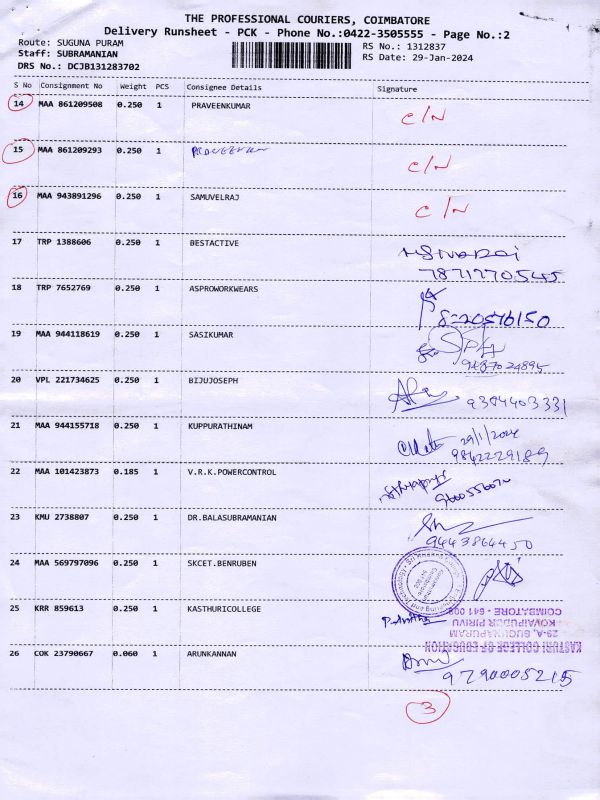 THE PROFESSIONAL COURIERS, COIMBATORE
Delivery Runsheet - PCK - Phone No.:0422-3505555 - Page No.:2
Route: SUGUNA PURAM
RS No.: 1312837
Staff: SUBRAMANIAN
RS Date: 29-Jan-2024
DRS No.: DCJB131283702
S No Consignment No Weight PCS Consignee Details Signature
14 MAA 861209508 0.250 1 PRAVEENKUMAR C/N
15 MAA 861209293 0.250 1 C/N
16 MAA 943891296 0.250 1 SAMUVELRAJ C/N
17 TRP 1388606 0.250 1 BESTACTIVE
7871770545
18 TRP 7652769 0.250 1 ASPROWORKWEARS
19 MAA 944118619 0.250 1 SASIKUMAR
9487024895
20 VPL 221734625 0.250 1 BIJUJOSEPH 9384403331
21 MAA 944155718 0.250 1 KUPPURATHINAM 29/1/2024
9842229189
22 MAA 101423873 0.185 1 V.R.K.POWERCONTROL
23 KMU 2738807 0.250 1 DR.BALASUBRAMANIAN
9443864450
24 MAA 569797096 0.250 1 SKCET.BENRUBEN
25 KRR 859613 0.250 1 KASTHURICOLLEGE
KASTURI COLLEGE OF EDUCATION
29-A, SUGUNAPURAM
KOVAIPUDUR PIRIVU
COIMBATORE - 641 008
26 COK 23790667 0.060 1 ARUNKANNAN
9790005215
3